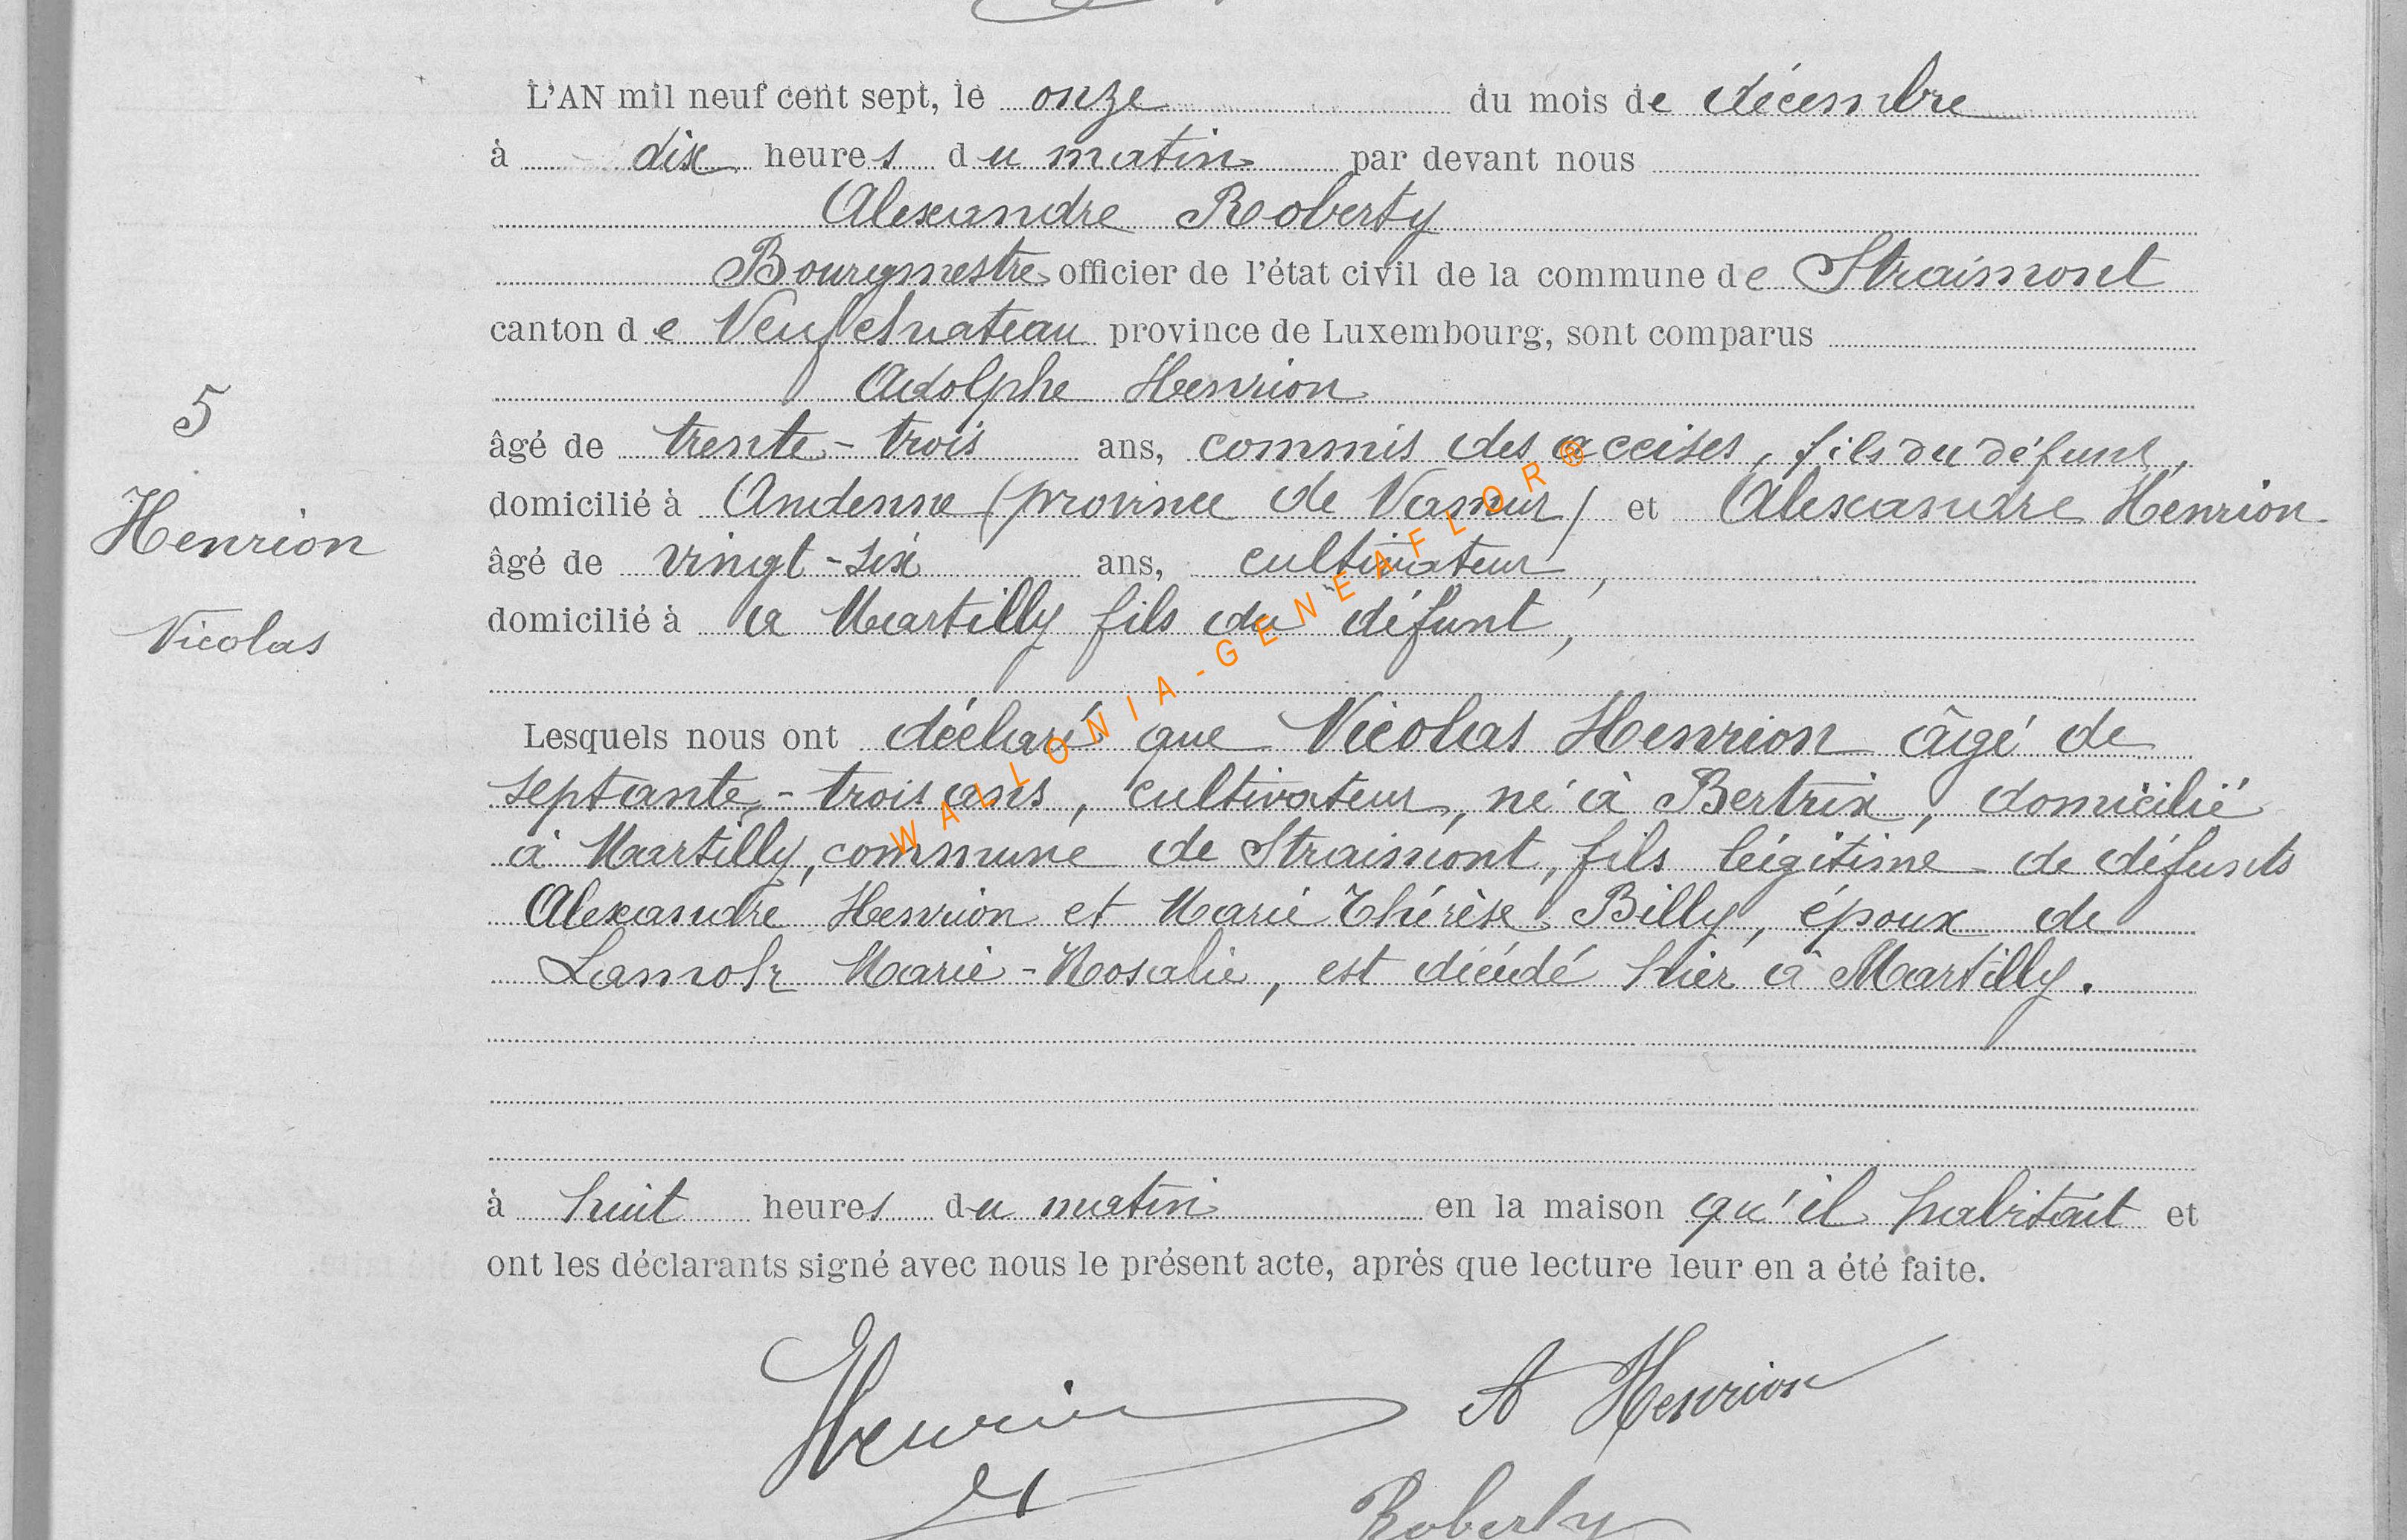 L'AN mil neuf cent sept, le onze du mois de décembre
à dix heures du matin par devant nous
Alexandre Roberty
Bourgmestre officier de l'état civil de la commune de Straimont
canton de Neufchateau province de Luxembourg, sont comparus
Adolphe Henrion
âgé de trente-trois ans, commis des accises, fils du défunt,
domicilié à Andenne (province de Namur) et Alexandre Henrion
âgé de vingt-six ans, cultivateur,
domicilié à à Martilly fils du défunt,
5
Henrion
Nicolas
Lesquels nous ont déclaré que Nicolas Henrion âgé de
septante-trois ans, cultivateur, né à Bertrix, domicilié
à Martilly, commune de Straimont, fils légitime de défunts
Alexandre Henrion et Marie Thérèse Billy, époux de
Lamock Marie-Rosalie, est décédé hier à Martilly.
à huit heures du matin en la maison qu'il habitait et
ont les déclarants signé avec nous le présent acte, après que lecture leur en a été faite.
Henrion A Henrion
Roberty
WALLONIA-GENEAFLOR®